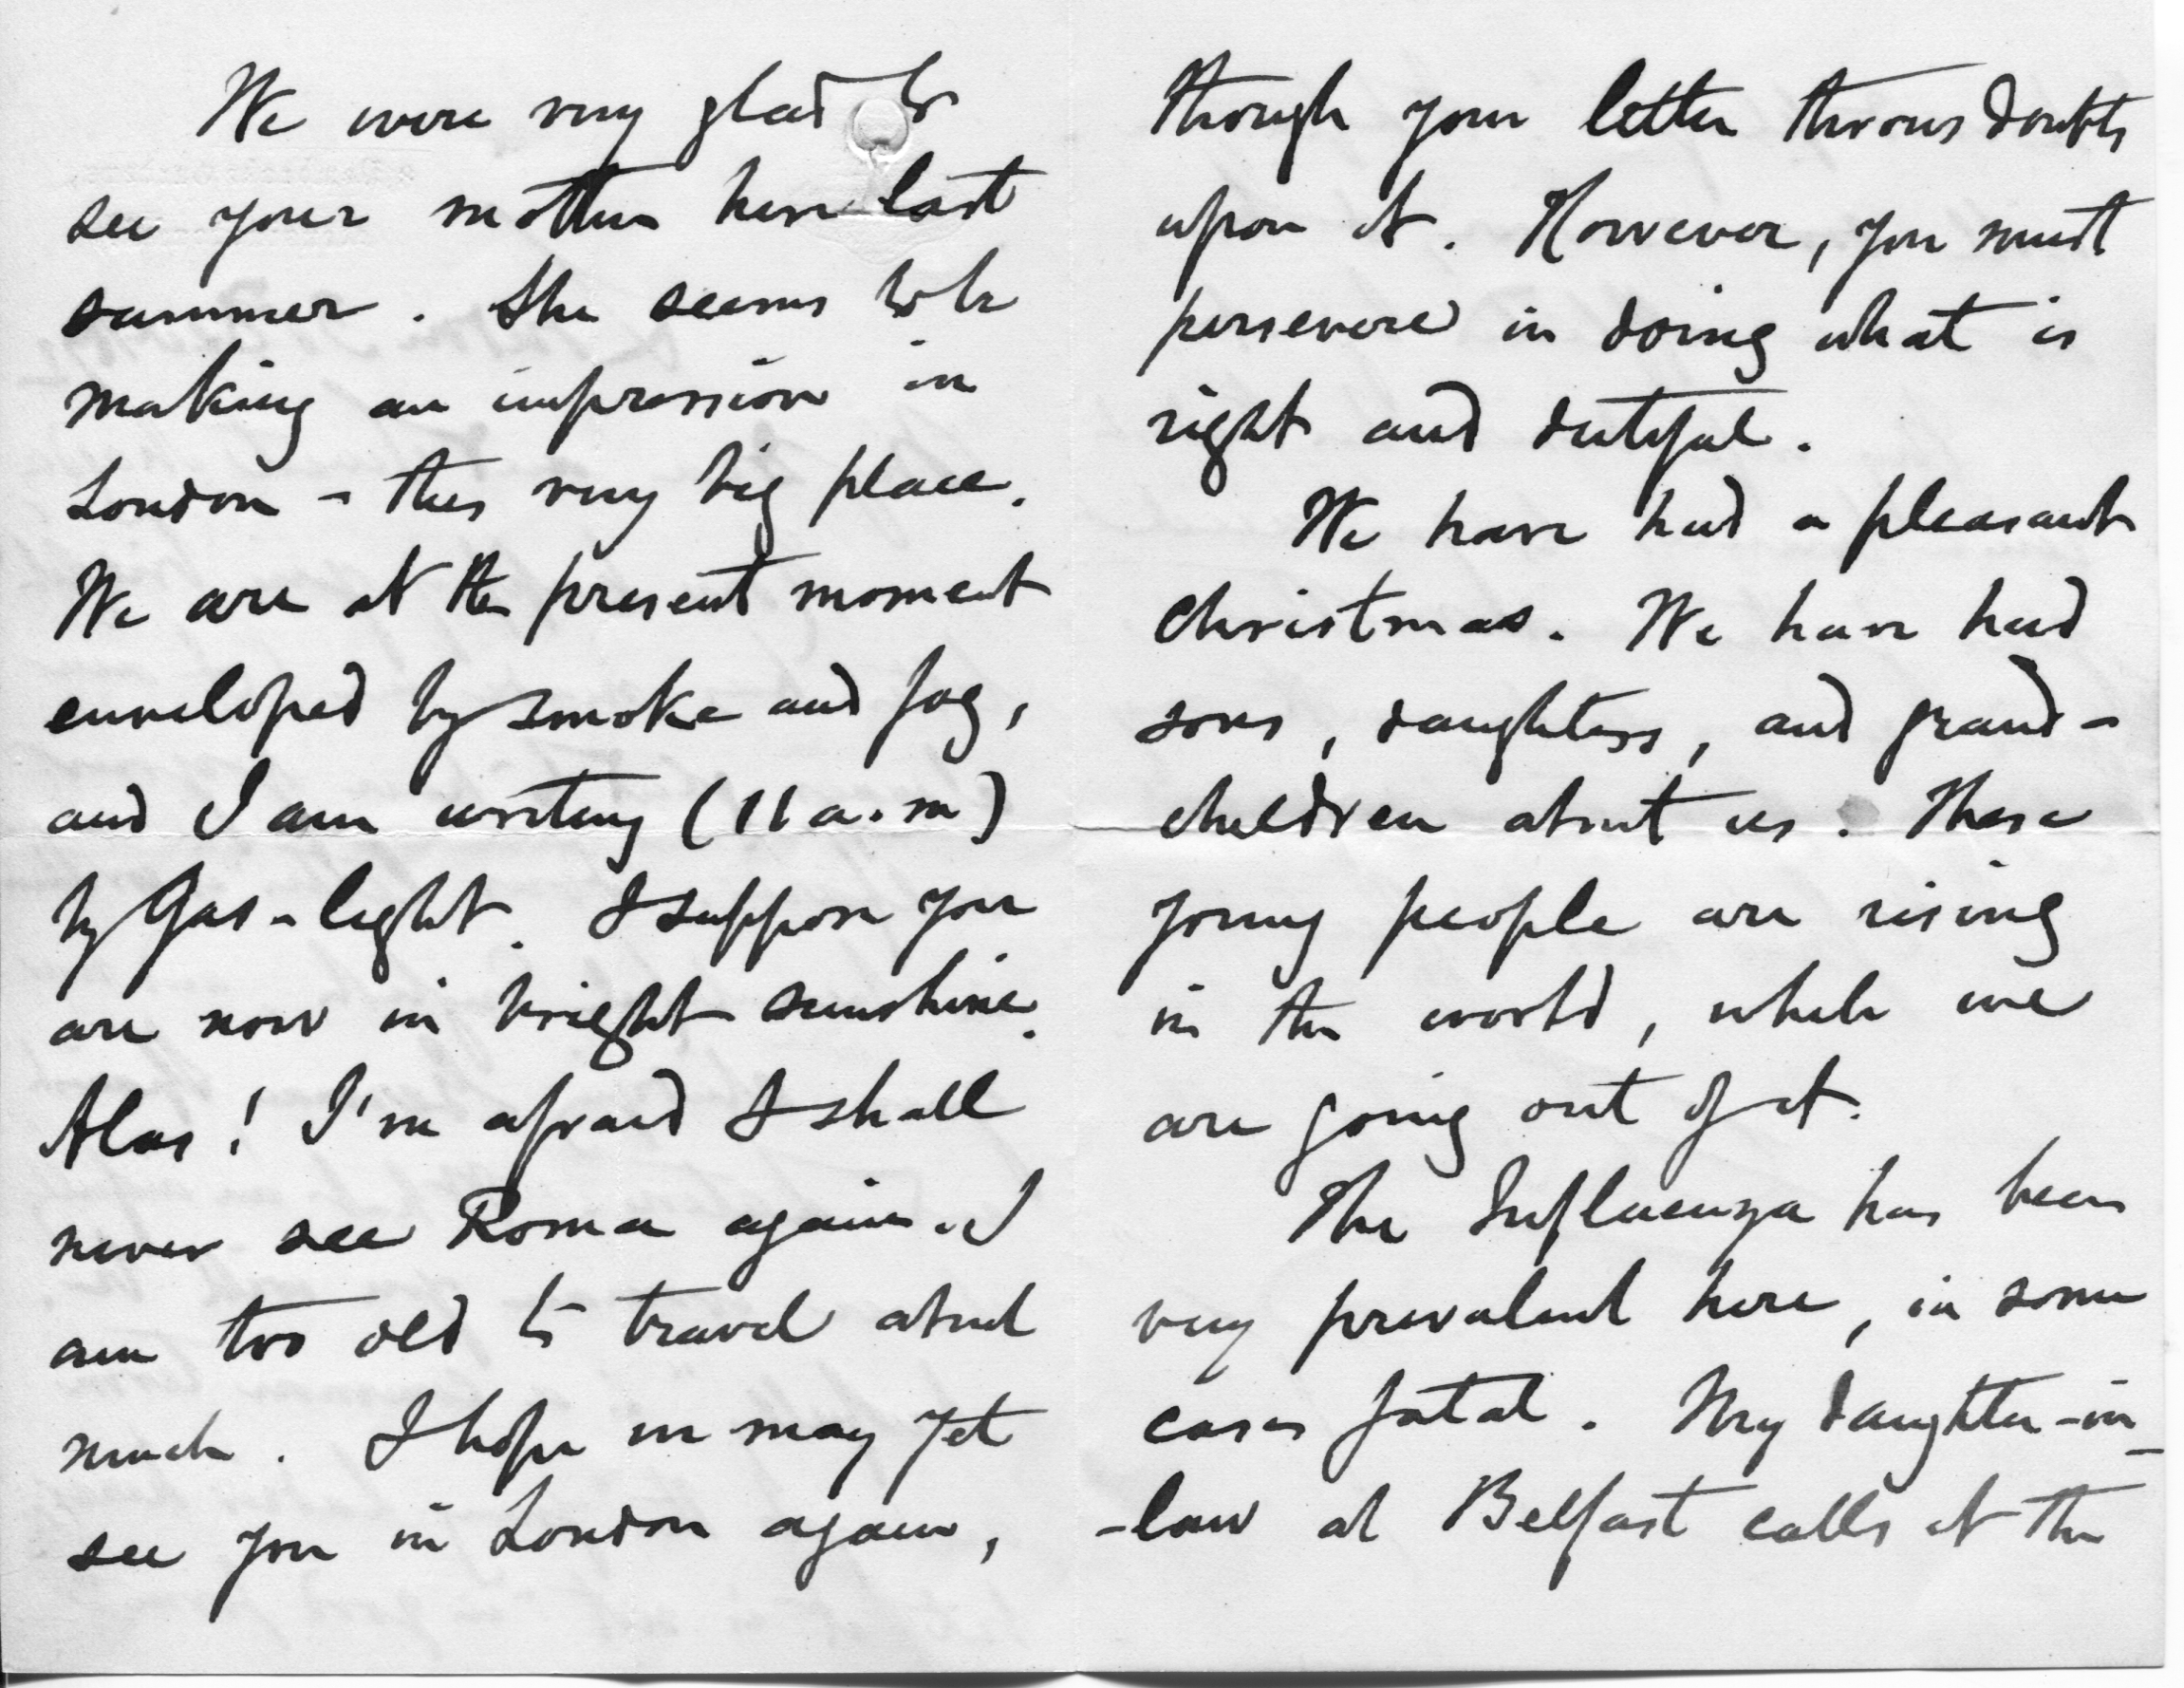 We were very glad to
see your mother here last
summer. She seems to be
making an impression in
London - this very big place.
We are at the present moment
enveloped by smoke and fog,
and I am writing (11 a.m)
by Gas-light. I suppose you
are now in bright sunshine.
Alas! I'm afraid I shall
never see Roma again. I
am too old to travel about
much. I hope we may yet
see you in London again,
though your letter throws doubts
upon it. However, you must
persevere in doing what is
right and dutiful.
We have had a pleasant
Christmas. We have had
sons, daughters, and grand-
children about us. These
young people are rising
in the world, while we
are going out of it.
The Influenza has been
very prevalent here, in some
cases fatal. My daughter-in-
-law at Belfast calls it the